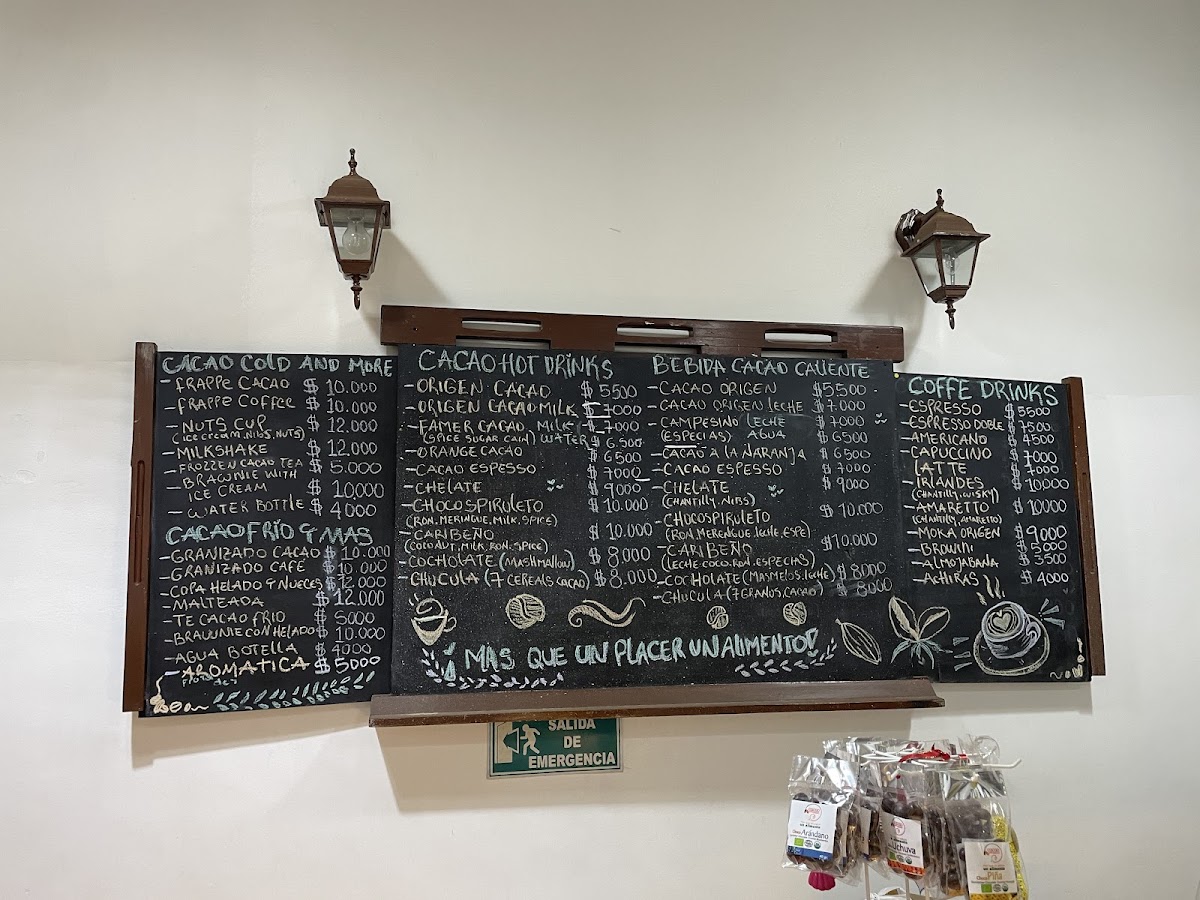 CACAO COLD AND MORE
-FRAPPE CACAO $ 10.000
-FRAPPE COFFEE $ 10.000
-NUTS CUP $ 12.000
(ICE CREAM, NIBS, NUTS)
-MILKSHAKE $ 12.000
-FROZZEN CACAO TEA $ 5.000
-BRAWNIE WITH
ICE CREAM $ 10,000
-WATER BOTTLE $ 4 000
CACAO FRÍO Y MAS
-GRANIZADO CACAO $ 10.000
-GRANIZADO CAFE $ 10.000
-COPA HELADO Y NUECES $ 12.000
-MALTEADA $ 12.000
-TE CACAO FRIO $ 5000
-BRAWNIE CON HELADO $ 10.000
-AGUA BOTELLA $ 4000
-AROMATICA $ 5000
CACAO HOT DRINKS
-ORIGEN CACAO $ 5500
-ORIGEN CACAO MILK $ 7000
-FAMER CACAO MILK $ 7000
(SPICE SUGAR CAIN) WATER $ 6.500
-ORANGE CACAO $ 6500
-CACAO ESPESSO $ 7000
-CHELATE $ 9000
-CHOCOSPIRULETO $ 10.000
(RON, MERINGUE, MILK, SPICE)
-CARIBEÑO $ 10.000
(COCONUT, MILK, RON, SPICE)
-COCHOLATE (MUSHMALLOW) $ 8,000
-CHUCULA (7 CEREALS CACAO) $ 8.000
BEBIDA CACAO CALIENTE
-CACAO ORIGEN $5.500
-CACAO ORIGEN LECHE $7.000
-CAMPESINO LECHE $7000
(ESPECIAS) AGUA $6500
-CACAO A LA NARANJA $6500
-CACAO ESPESSO $7000
-CHELATE $ 9000
(CHANTILLY, NIBS)
-CHOCOSPIRULETO $ 10.000
(RON, MERENGUE, LECHE, ESPE)
-CARIBEÑO $10.000
(LECHE COCO, RON, ESPECIAS)
-COCHOLATE (MASMELOS, LECHE) $ 8000
-CHUCULA (7 GRANOS, CACAO) $ 8000
MAS QUE UN PLACER UN ALIMENTO!
COFFE DRINKS
-ESPRESSO $ 5500
-ESPRESSO DOBLE $ 7500
-AMERICANO $ 4500
-CAPUCCINO $ 7000
-LATTE $ 7000
-IRLANDES $ 10000
(CHANTILLY, WISKY)
-AMARETTO $ 10000
(CHANTILLY, AMARETTO)
-MOKA ORIGEN $ 9000
-BROWNI $ 5000
-ALMOJABANA $ 3500
-ACHIRAS $ 4000
SALIDA
DE
EMERGENCIA
Choco Arándano
Uchuva
Choco Piña